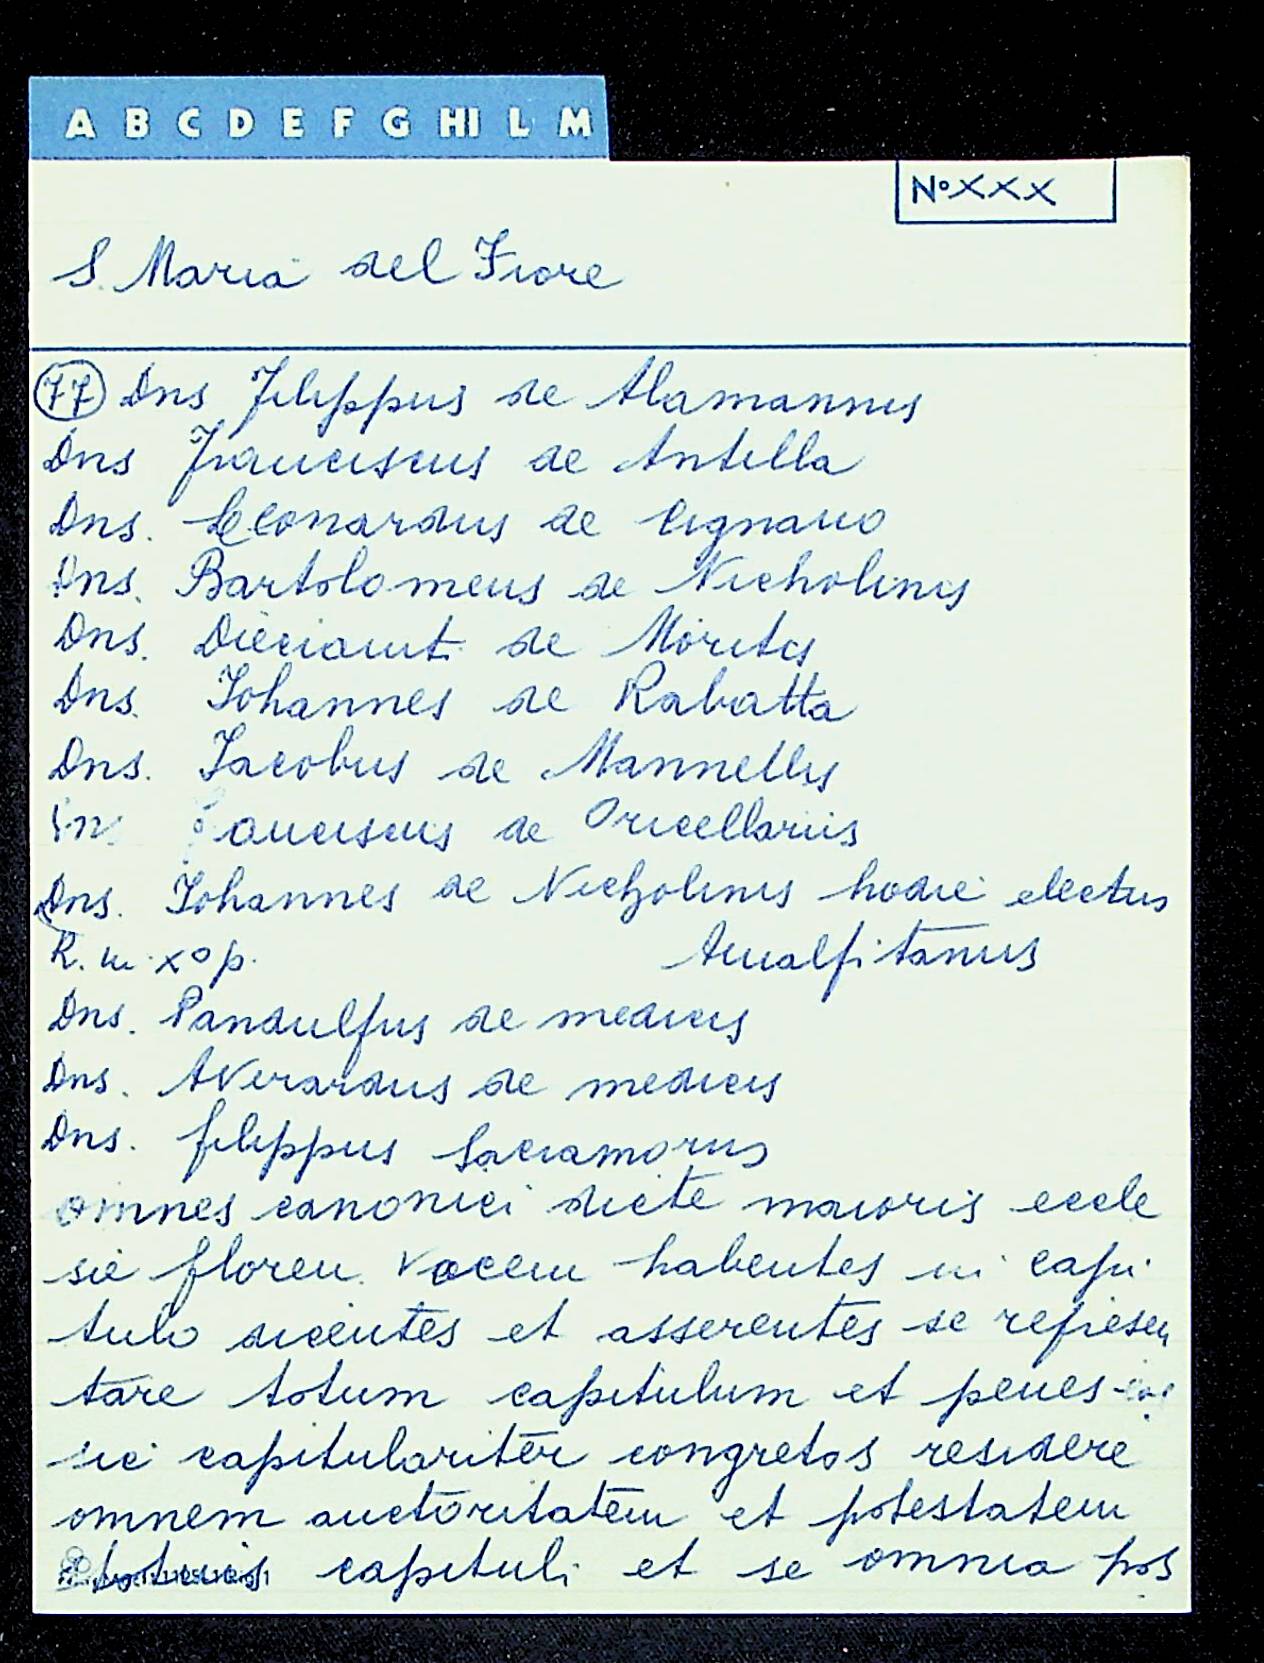 A B C D E F G HI L M
N° XXX
S. Maria del Fiore
77 Dns Filippus de Alamannis
Dns Franciscus de Antella
Dns. Leonardus de Cignano
Dns. Bartolomeus de Nicholinis
Dns. Dieciaiut. de
Dns. Johannes de Rabatta
Dns. Jacobus de Mannellis
de Oricellariis
Dns. Johannes de Nicholinis hodie electus
Amalfitanus
Dns. Pandulfus de medicis
Dns. Averardus de medicis
Dns. filippus Sacramorus
omnes canonici dicte maioris eccle
sie floren. vocem habentes in capi
tulo dicentes et asserentes se represen
tare totum capitulum et penes eos
sic capitulariter congretos residere
omnem auctoritatem et potestatem
totius capituli et se omnia pos